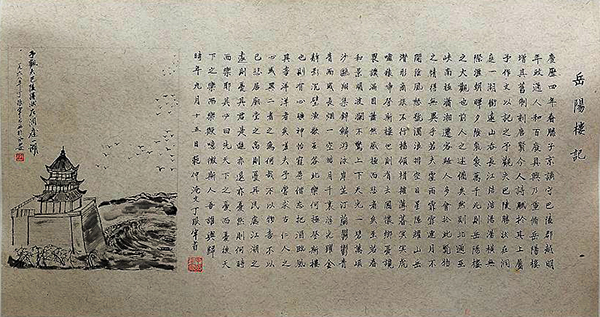 岳陽樓記
慶歷四年春滕子京謫守巴陵郡越明
年政通人和百廢具興乃重修岳陽樓
增其舊制刻唐賢今人詩賦於其上屬
予作文以記之予觀夫巴陵勝狀在洞
庭一湖銜遠山吞長江浩浩湯湯橫無
際涯朝暉夕陰氣象萬千此則岳陽樓
之大觀也前人之述備矣然則北通巫
峽南極瀟湘遷客騷人多會於此覽物
之情得無異乎若夫霪雨霏霏連月不
開陰風怒號濁浪排空日星隱曜山岳
潛形商旅不行檣傾楫摧薄暮冥冥虎
嘯猿啼登斯樓也則有去國懷鄉憂讒
畏譏滿目蕭然感極而悲者矣至若春
和景明波瀾不驚上下天光一碧萬頃
沙鷗翔集錦鱗游泳岸芷汀蘭郁郁青
青而或長煙一空皓月千里浮光躍金
靜影沉璧漁歌互答此樂何極登斯樓
也則有心曠神怡寵辱偕忘把酒臨風
其喜洋洋者矣嗟夫予嘗求古仁人之
心或異二者之為何哉不以物喜不以
己悲居廟堂之高則憂其民處江湖之
遠則憂其君是進亦憂退亦憂然則何時
而樂耶其必曰先天下之憂而憂後天
下之樂而樂歟噫微斯人吾誰與歸
時年九月十五日范仲淹文丁
予觀夫巴陵勝狀在洞庭一湖